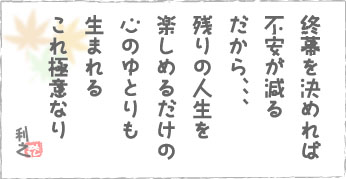 終幕を決めれば
不安が減る
だから、、、
残りの人生を
楽しめるだけの
心のゆとりも
生まれる
これ極意なり
利之